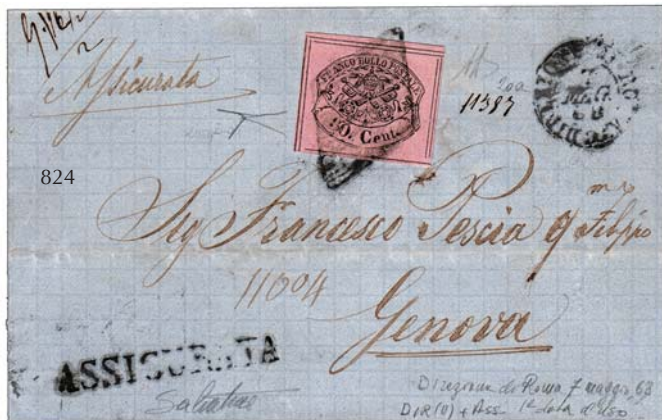 Assicurata
FRANCO BOLLO POSTALE
80. Cent.
200
11387
7
MAG
68
824
Sig Francesco Pescia q Filippo
11004
Genova
ASSICURATA
Direzione di Roma 7 maggio 68
DIR(0) + Ass 1ª data d'uso